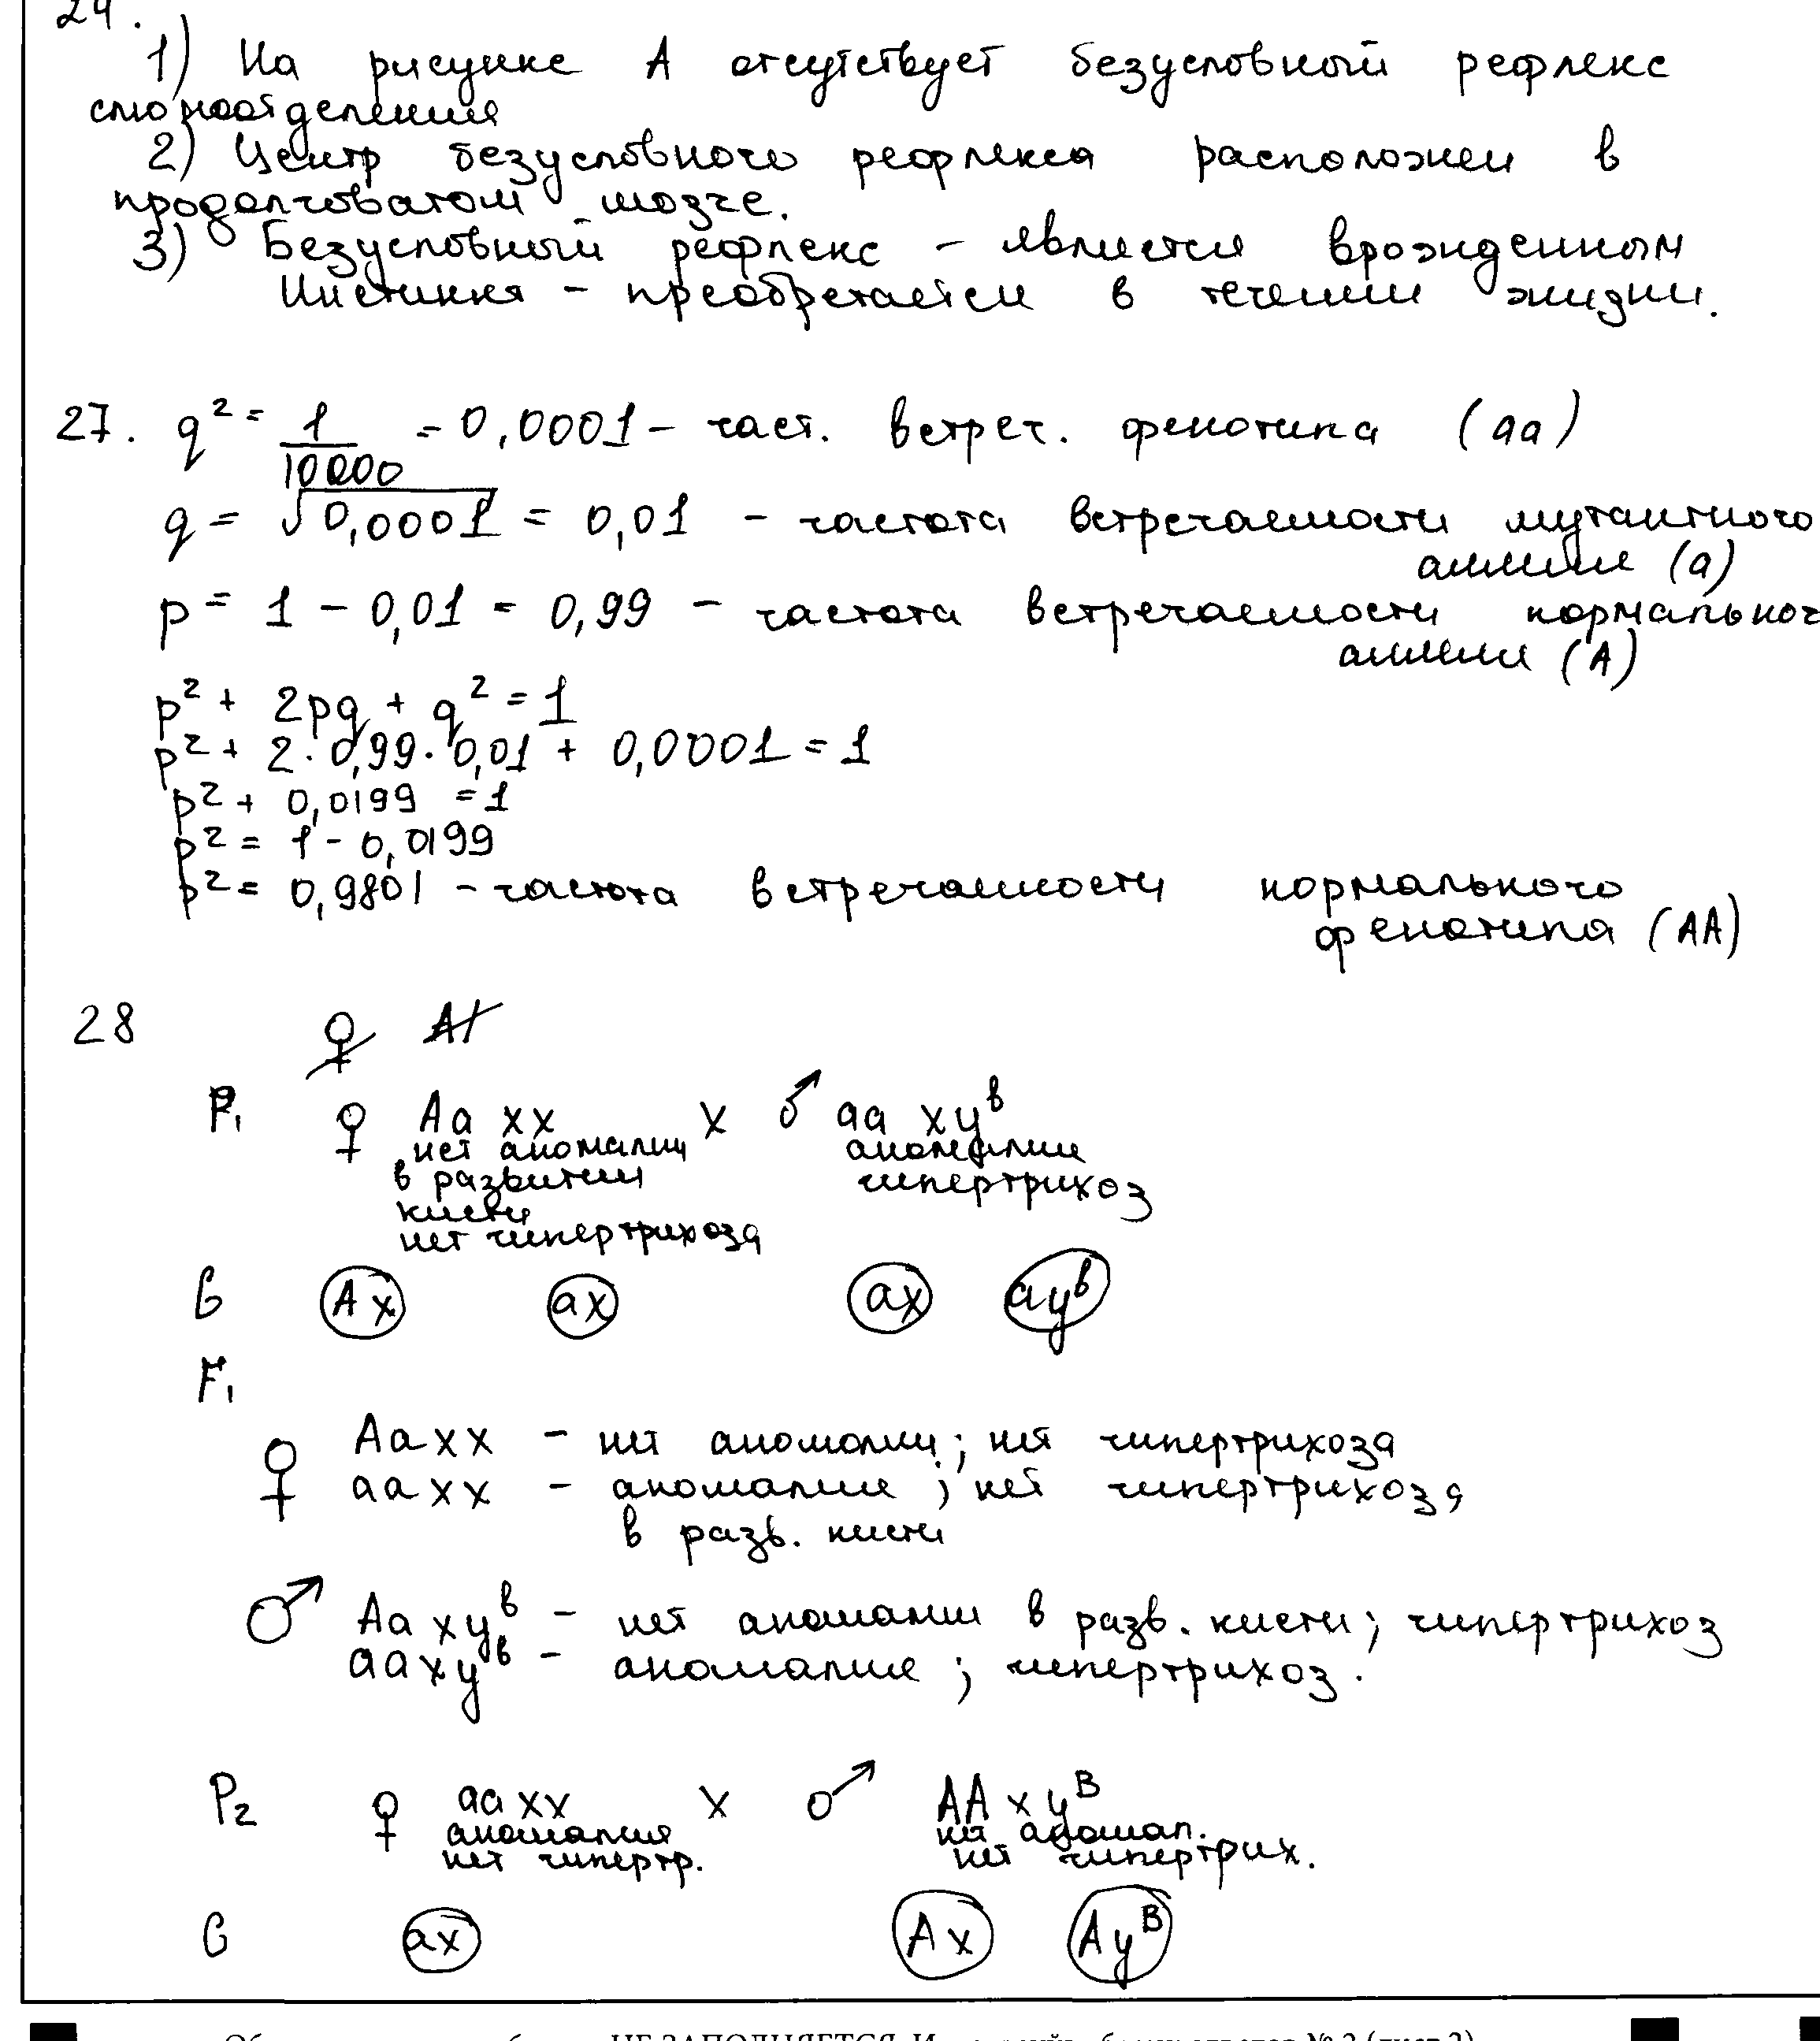 24.
1) На рисунке А отсутствует безусловный рефлекс
слюноотделения
2) Центр безусловного рефлекса расположен в
продолговатом мозге.
3) Безусловный рефлекс - является врожденным
Инстинкя - преобретается в течении жизни.
27. q² = 1/10000 = 0,0001 - част. встреч. фенотипа (aa)
q = √0,0001 = 0,01 - частота встречаемости мутантного
аллеля (a)
p = 1 - 0,01 = 0,99 - частота встречаемости нормальног
аллеля (A)
p² + 2pq + q² = 1
p² + 2·0,99·0,01 + 0,0001 = 1
p² + 0,0199 = 1
p² = 1 - 0,0199
p² = 0,9801 - частота встречаемости нормального
фенотипа (AA)
28
P₁ ♀ Aa xx x ♂ aa xyᵇ
нет аномалии аномалии
в развитии гипертрихоз
кисти
нет гипертрихоза
G Ax ax ax ayᵇ
F₁
♀ Aaxx - нет аномалии; нет гипертрихоза
aaxx - аномалие; нет гипертрихоза
в разв. кисти
♂ Aaxyᵇ - нет аномалии в разв. кисти; гипертрихоз
aaxyᵇ - аномалие; гипертрихоз.
P₂ ♀ aaxx x ♂ AAxyᴮ
аномалия нет аномал.
нет гипертр. нет гипертрих.
G ax Ax Ayᴮ